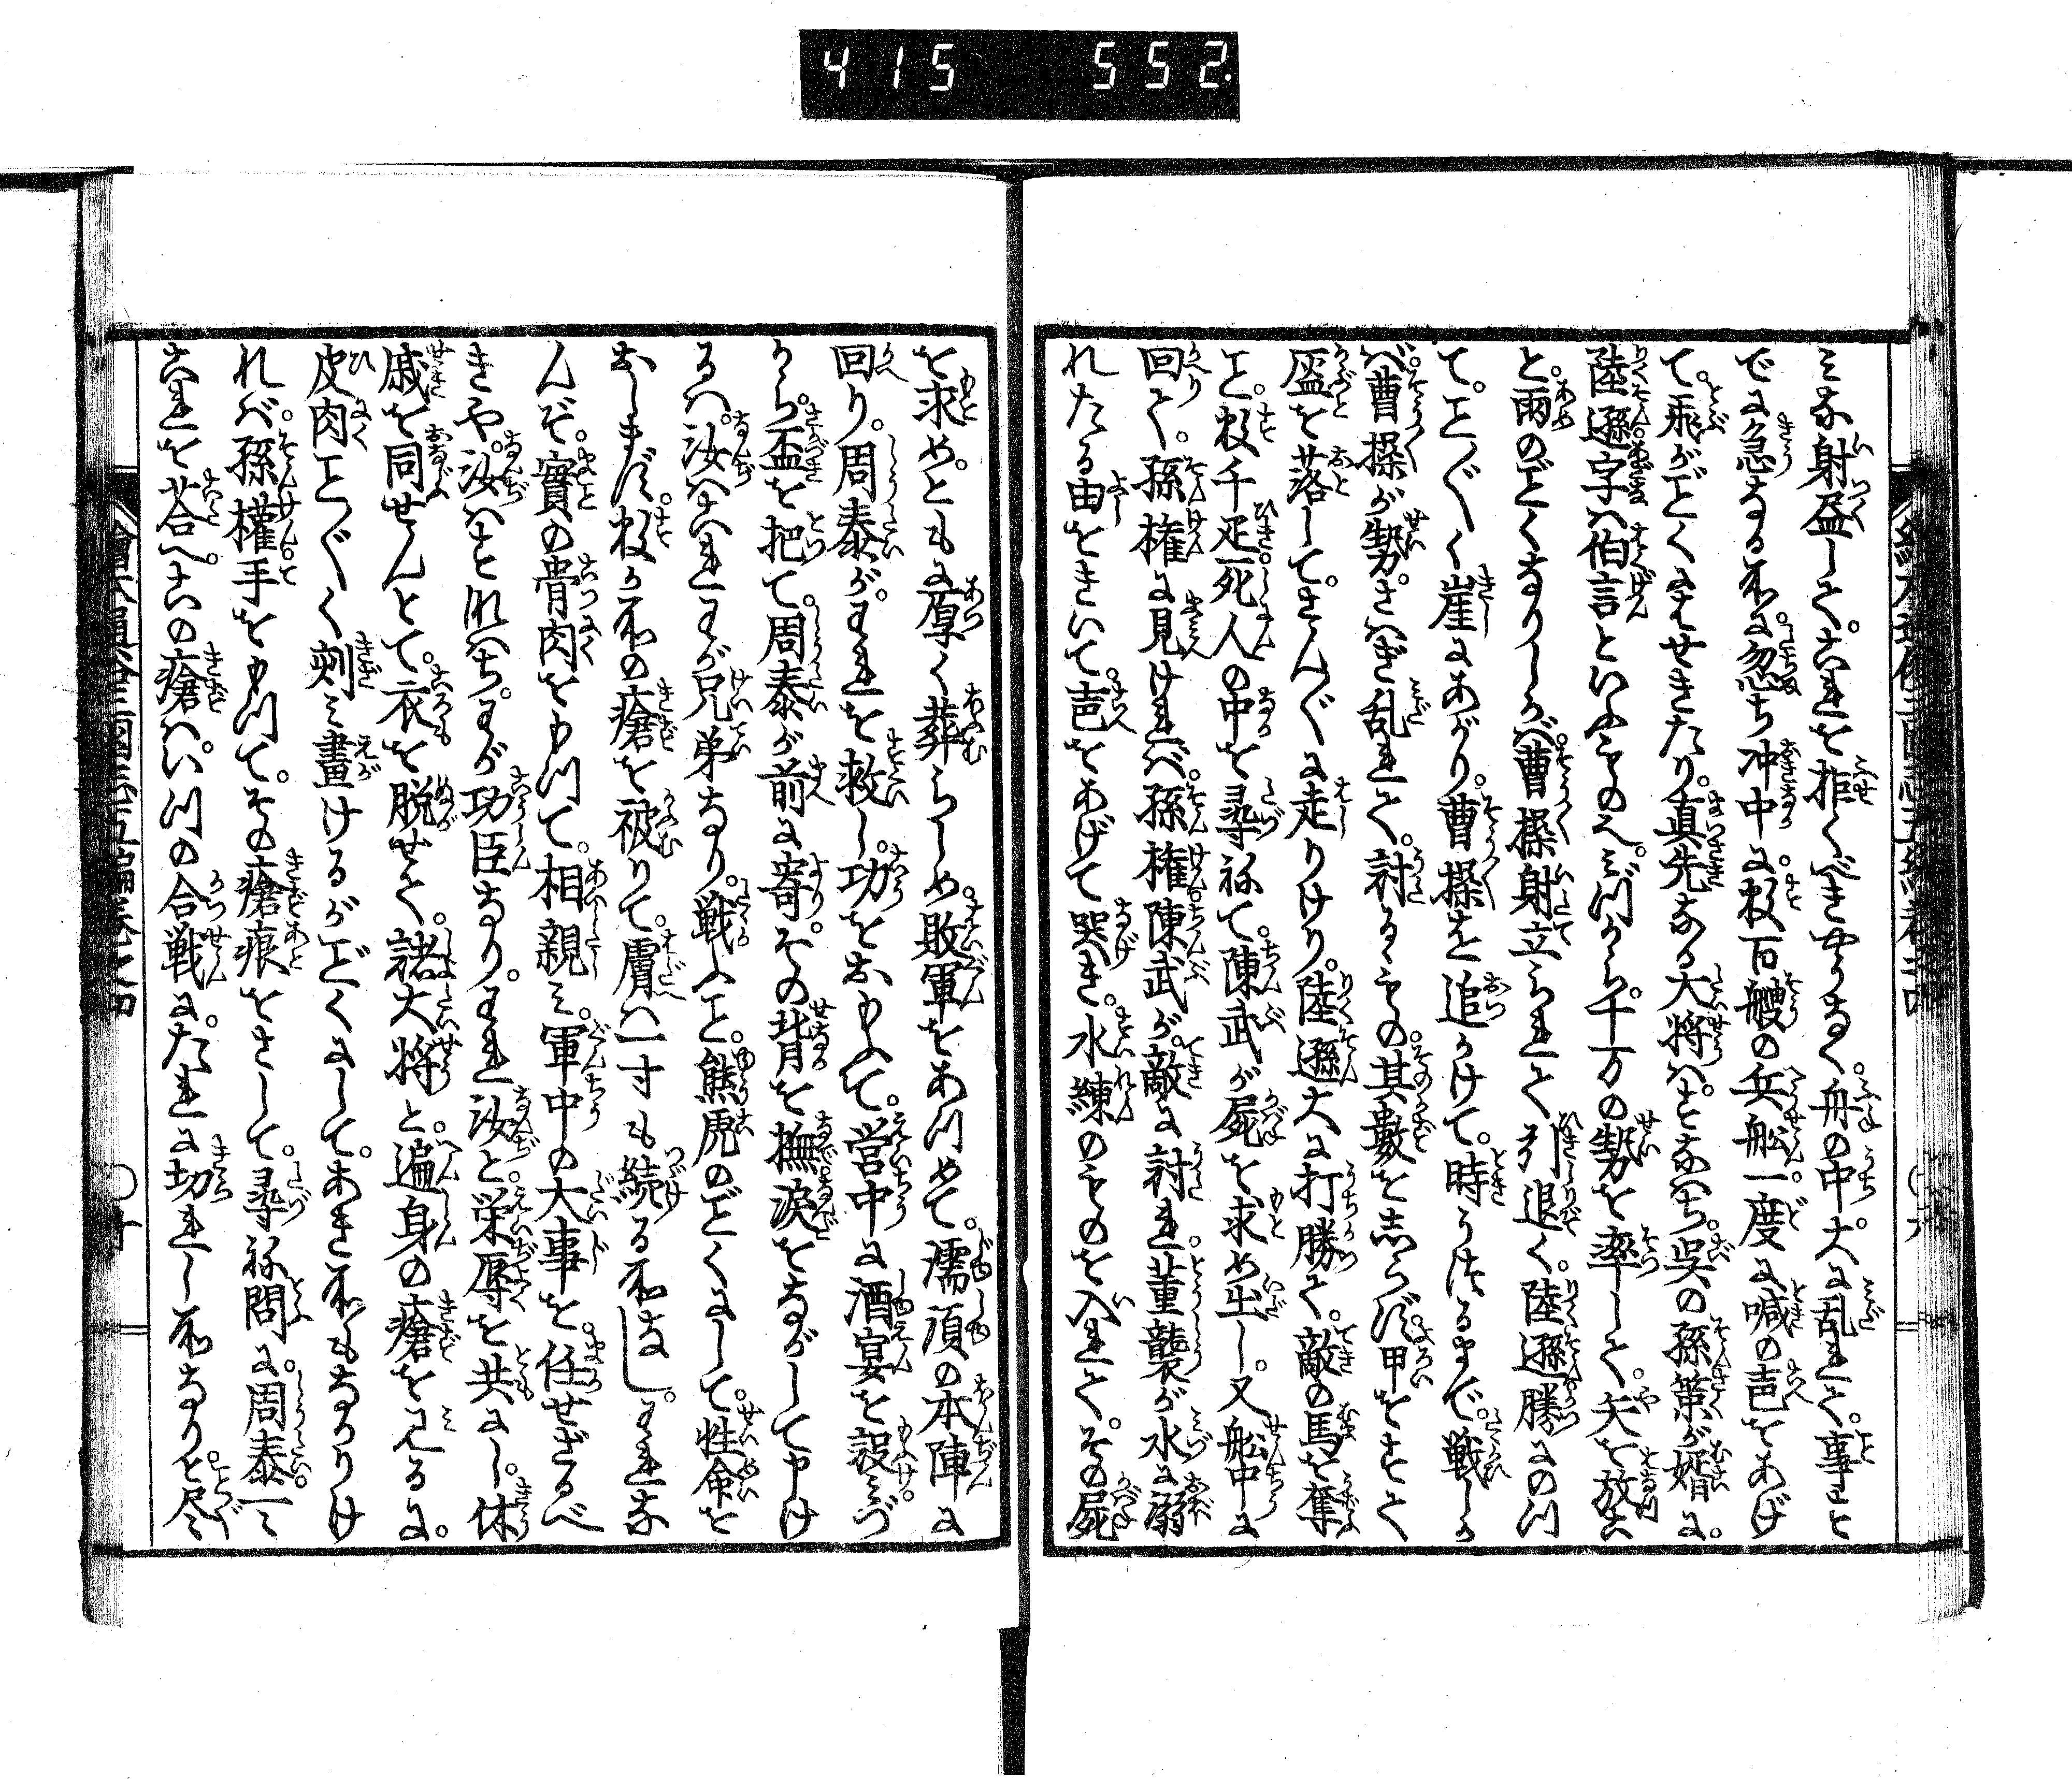 415 552.
ミな射盡して。これを拒くべきやうなく。舟の中。大に乱れて。事こと
でに急なる所に忽ち沖中に。数百艘の兵舩。一度に喊の声をあげ
て。飛がごとくはせきたり。真先なる大将は。これなはち。呉の孫策が婿に。
陸遜字は伯言といふもの也。ミづから。千万の勢を率して。矢を放こ
と。雨のごとくなりしかば。曹操射立られて引退く。陸遜勝にのつ
て。ことごとく崖にあがり。曹操を追かけて。時うつるまで。戦しか
ば。曹操が勢。さハぎ乱れて。討るもの。其數を志らず。甲をすて
盔を落して。さんぐに走りけり。陸遜大に打勝て。敵の馬を奪
こと。数千疋。死人の中を尋ねて。陳武が屍を求め出し。又舩中に
回りて。孫権に見けれバ。孫権。陳武が敵に討れ。董襲が水に溺
れたる由をきいて。声をあげて哭き。水練のものを入れて。その屍
を求めともに厚く葬らしめ。敗軍をあつめて。濡須の本陣に
回り。周泰が。われを救し。功をおもふて。営中に酒宴を設ミづ
から。盃を把て。周泰が前に寄。その背を撫。涙をながして申け
るハ。汝ハこれわが兄弟なり。戦ふこと。熊虎のごとくにして。性命を
おしまず。数か所の瘡を被りて。膚ハ一寸も続る所なし。われな
んぞ。實の骨肉をもつて。相親ミ。軍中の大事を。任せざるべ
きや。汝ハすなハち。わが功臣なり。われ汝と。栄辱を共にし。休
戚を同せんとて。衣を脱せて。諸大将と。遍身の瘡を見るに。
皮肉ことぐく刻ミ畫けるがごとくにして。あき所もなかりけ
れバ。孫權手をもつて。その瘡痕をさして。尋ね問に。周泰一〻
これを荅へ。この瘡ハ。いつの合戦に。たれに切れし所なりと。尽〻